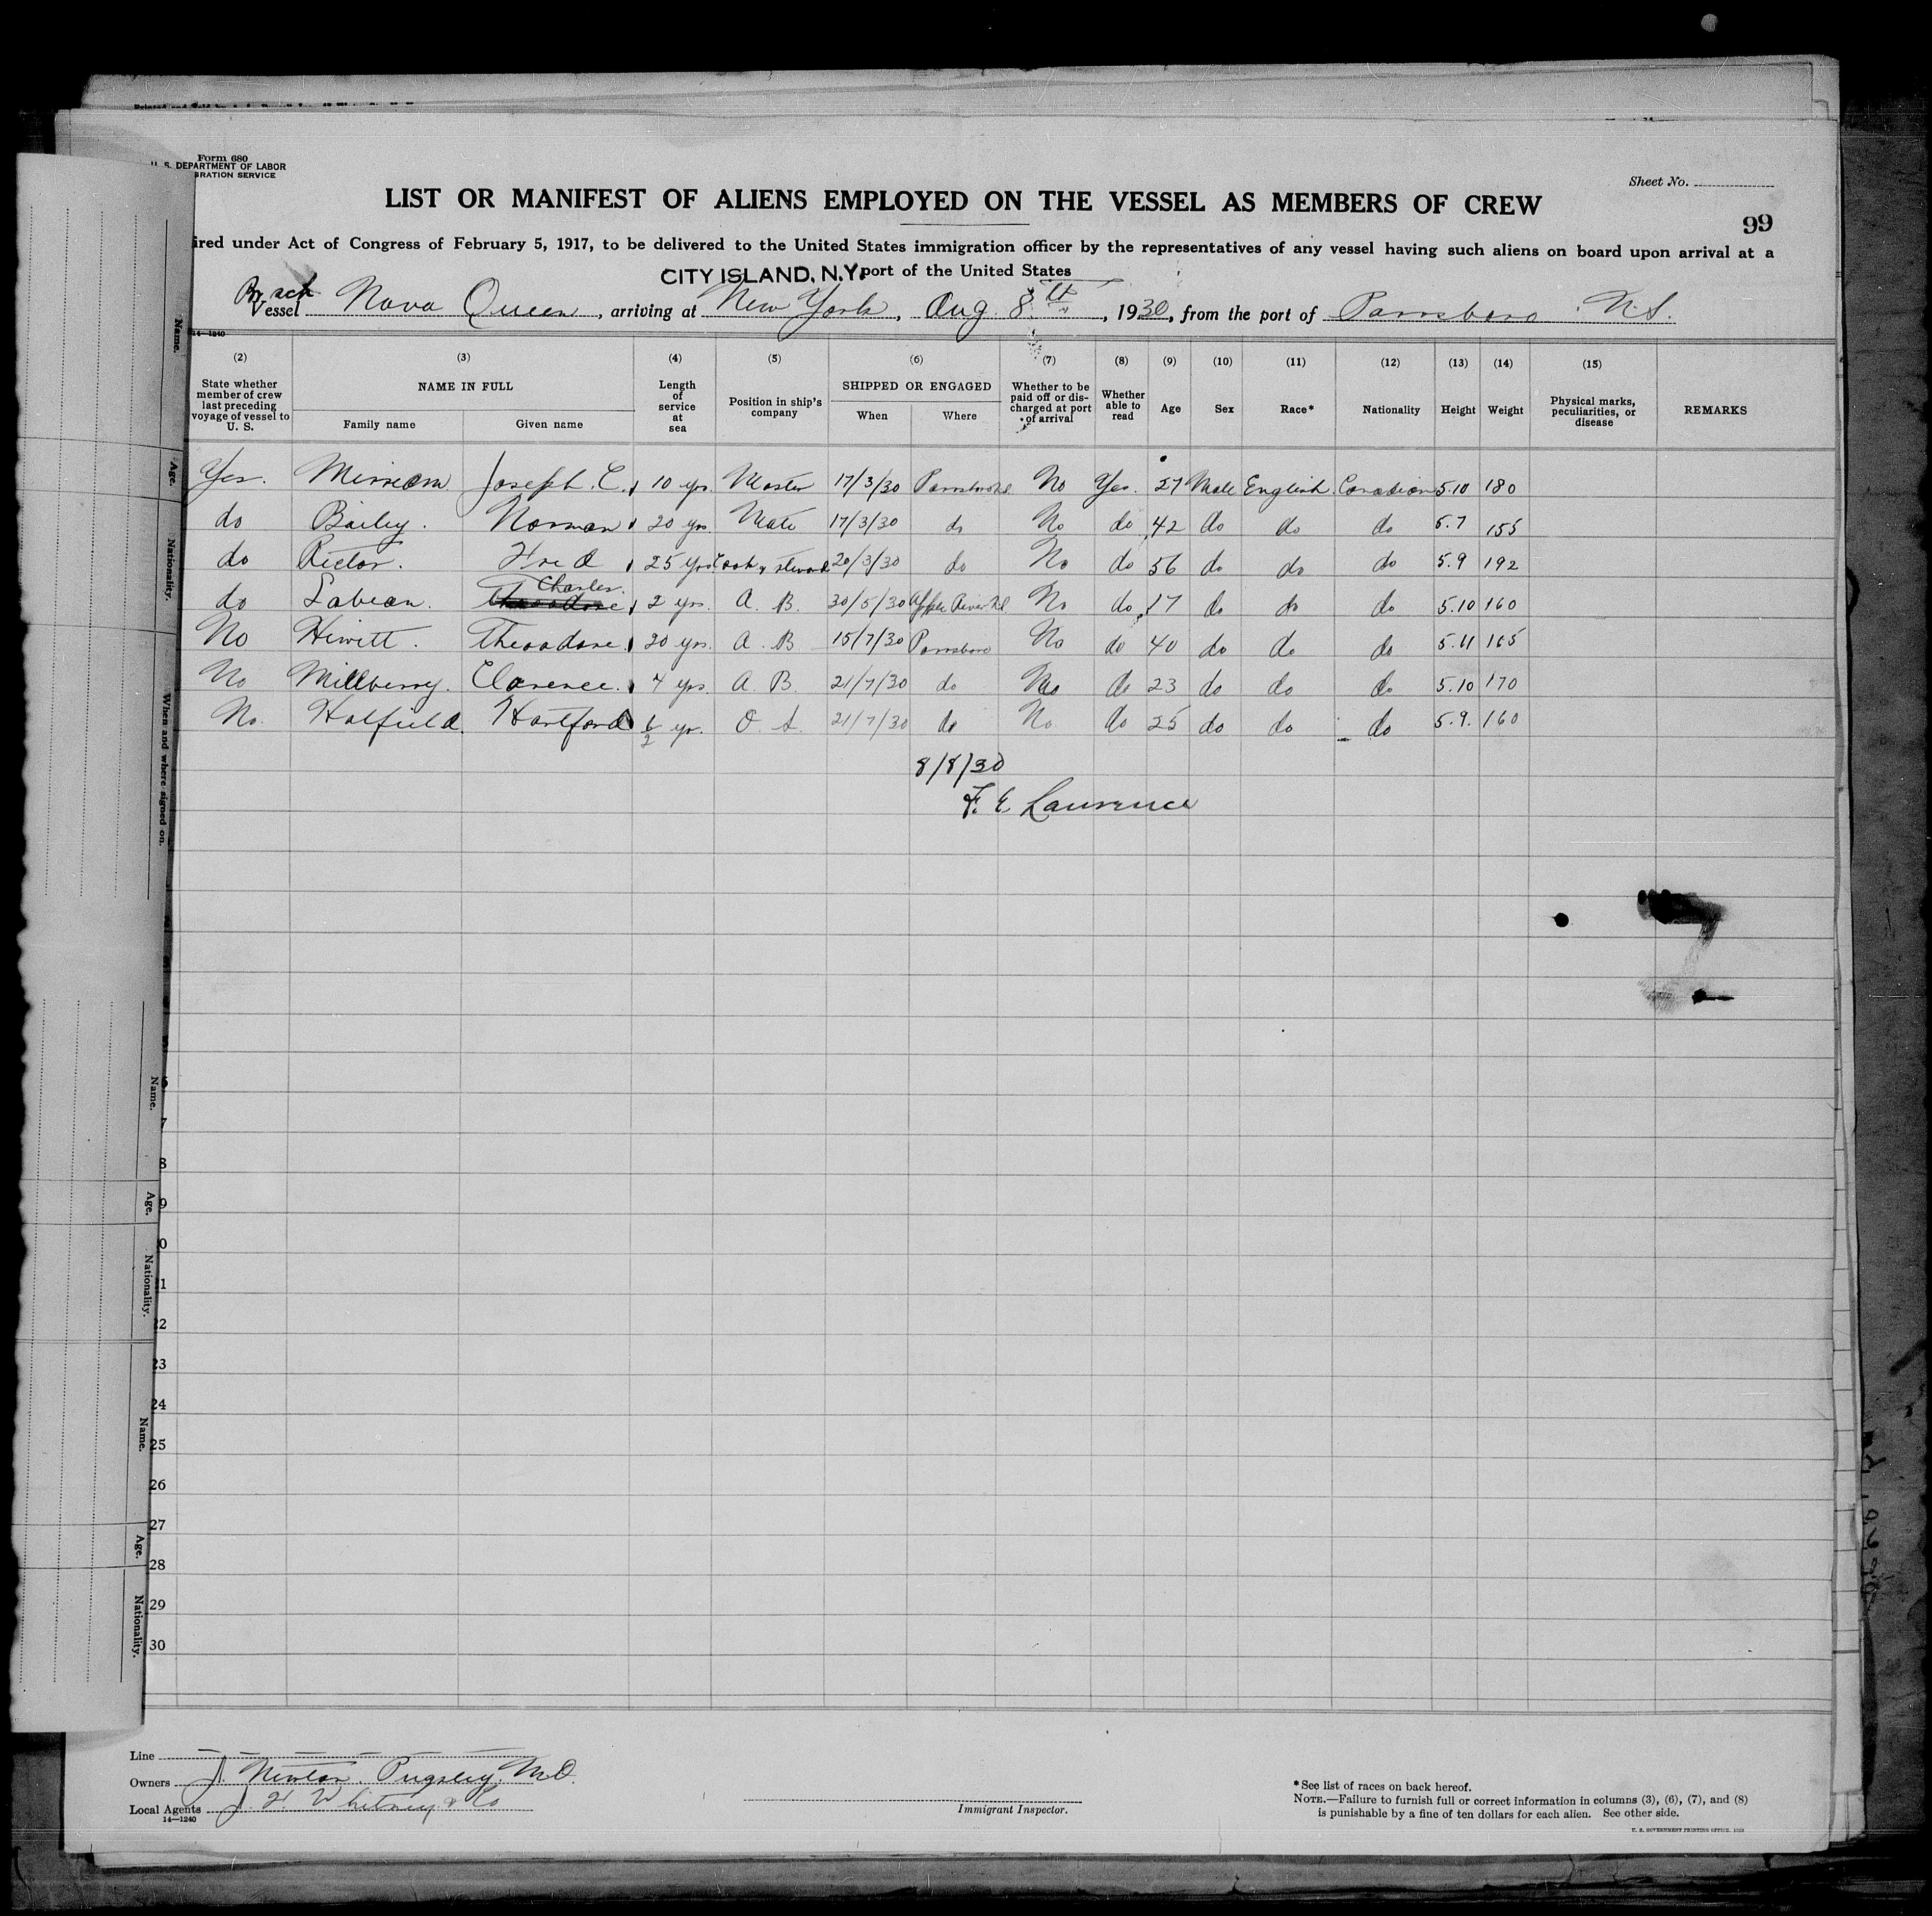 Form 680
U. S. DEPARTMENT OF LABOR
GRATION SERVICE
Sheet No.
LIST OR MANIFEST OF ALIENS EMPLOYED ON THE VESSEL AS MEMBERS OF CREW
99
ired under Act of Congress of February 5, 1917, to be delivered to the United States immigration officer by the representatives of any vessel having such aliens on board upon arrival at a
CITY ISLAND, N.Y. port of the United States
Br sch
Vessel Nova Queen, arriving at New York, Aug 8th, 1930, from the port of Parrsboro N.S.
14—1240
(2) (3) (4) (5) (6) (7) (8) (9) (10) (11) (12) (13) (14) (15)
State whether member of crew last preceding voyage of vessel to U. S. NAME IN FULL Family name Given name Length of service at sea Position in ship's company SHIPPED OR ENGAGED When Where Whether to be paid off or discharged at port of arrival Whether able to read Age Sex Race* Nationality Height Weight Physical marks, peculiarities, or disease REMARKS
Yes. Merriam Joseph C. 10 yrs. Master 17/3/30 Parrsboro No Yes. 27 Male English Canadian 5.10 180
do Bailey. Norman 20 yrs. Mate 17/3/30 do No do 42 do do do 5.7 155
do Rector. Fred 25 yrs Cook & steward 20/3/30 do No do 56 do do do 5.9 192
Charles.
do Labean. Theodore 2 yrs. A. B. 30/5/30 No do 17 do do do 5.10 160
No Hewitt. Theodore. 20 yrs. A. B 15/7/30 Parrsboro No do 40 do do do 5.11 165
No Millberry. Clarence. 4 yrs. A. B. 21/7/30 do No do 23 do do do 5.10 170
No. Hatfield. Hartford yr. O. S. 21/7/30 do No. do 25 do do do 5.9. 160
8/8/30
F. E Lawrence
Name.
Age.
Nationality.
When and where signed on.
Name.
Age.
Nationality.
Name.
Age.
Nationality.
7
8
9
0
21
22
23
24
25
26
27
28
29
30
Line
Owners J. Newton Pugsley, M.O.
Local Agents J. F. Whitney & Co
14—1240
Immigrant Inspector.
* See list of races on back hereof.
NOTE.—Failure to furnish full or correct information in columns (3), (6), (7), and (8)
is punishable by a fine of ten dollars for each alien. See other side.
U. S. GOVERNMENT PRINTING OFFICE.